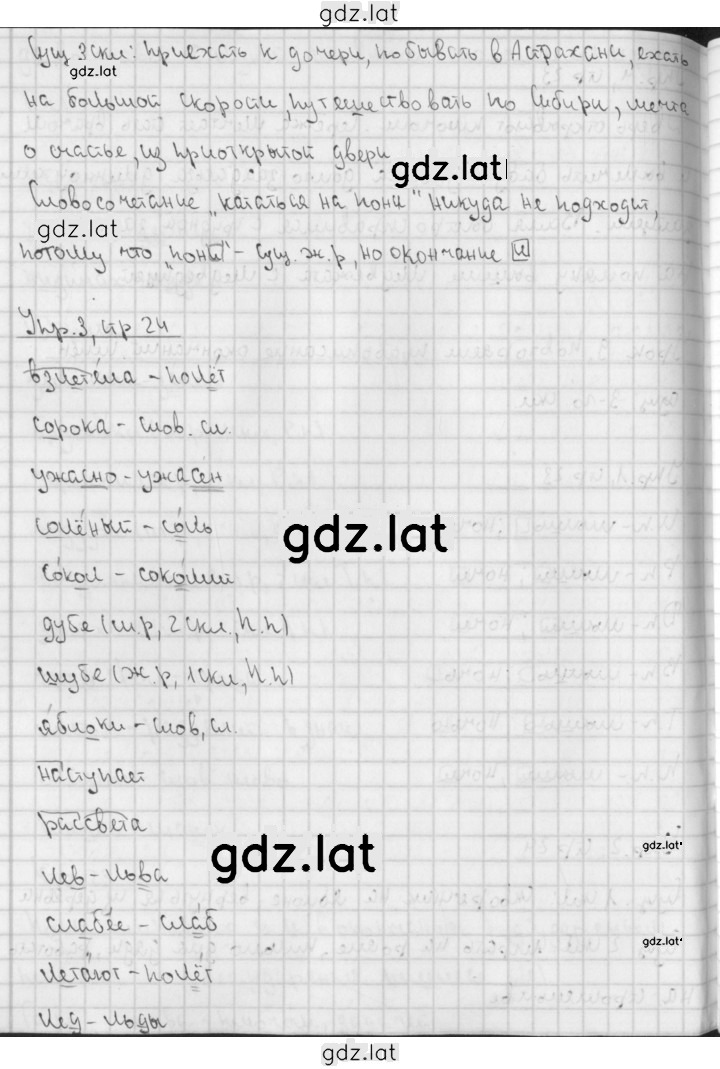 gdz.lat
Сущ 3 скл: приехать к дочери, побывать в Астрахани, ехать
gdz.lat
на большой скорости, путешествовать по Сибири, мечта
о счастье, из приоткрытой двери
gdz.lat
Словосочетание „кататься на пони" никуда не подходит,
gdz.lat
потому что „пони" - сущ. ж.р, но окончание и
Упр.3, стр 24
взлетела - полёт
сорока - слов. сл.
ужасно - ужасен
солёный - соль
gdz.lat
сокол - соколий
дубе (м.р, 2 скл., П.п)
шубе (ж.р, 1 скл, П.п)
яблоки - слов, сл.
наступает
рассвета
gdz.lat
лев - льва
gdz.lat
слабее - слаб
gdz.lat
летают - полёт
лед - льды
gdz.lat